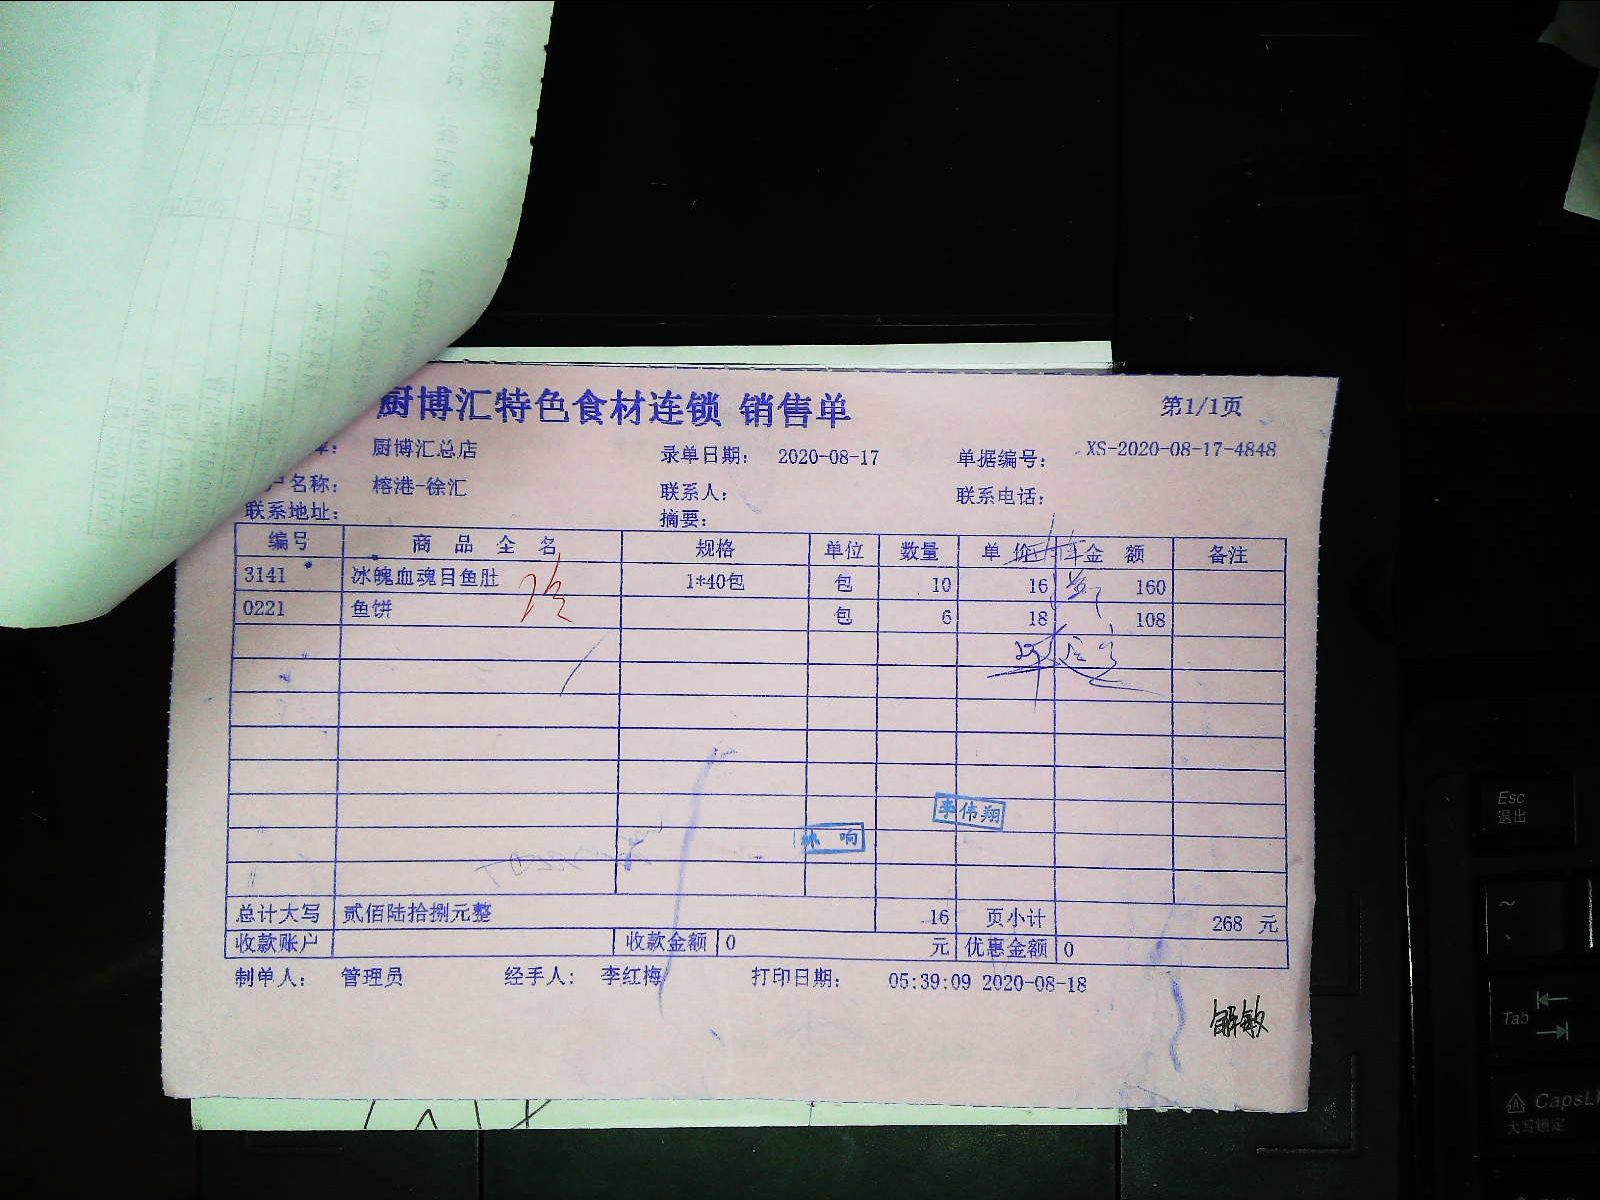 厨博汇特色食材连锁 销售单 第1/1页
厨博汇总店 录单日期: 2020-08-17 单据编号: XS-2020-08-17-4848
户名称: 榕港-徐汇 联系人: 联系电话:
联系地址: 摘要:
编号 商品全名 规格 单位 数量 单价 金额 备注
3141 冰魄血魂目鱼肚 1*40包 包 10 16 160
0221 鱼饼 包 6 18 108
李伟翔
响
总计大写 贰佰陆拾捌元整 16 页小计 268 元
收款账户 收款金额 0 元 优惠金额 0
制单人: 管理员 经手人: 李红梅 打印日期: 05:39:09 2020-08-18
Esc
退出
~
Tab
CapsL
大写锁定